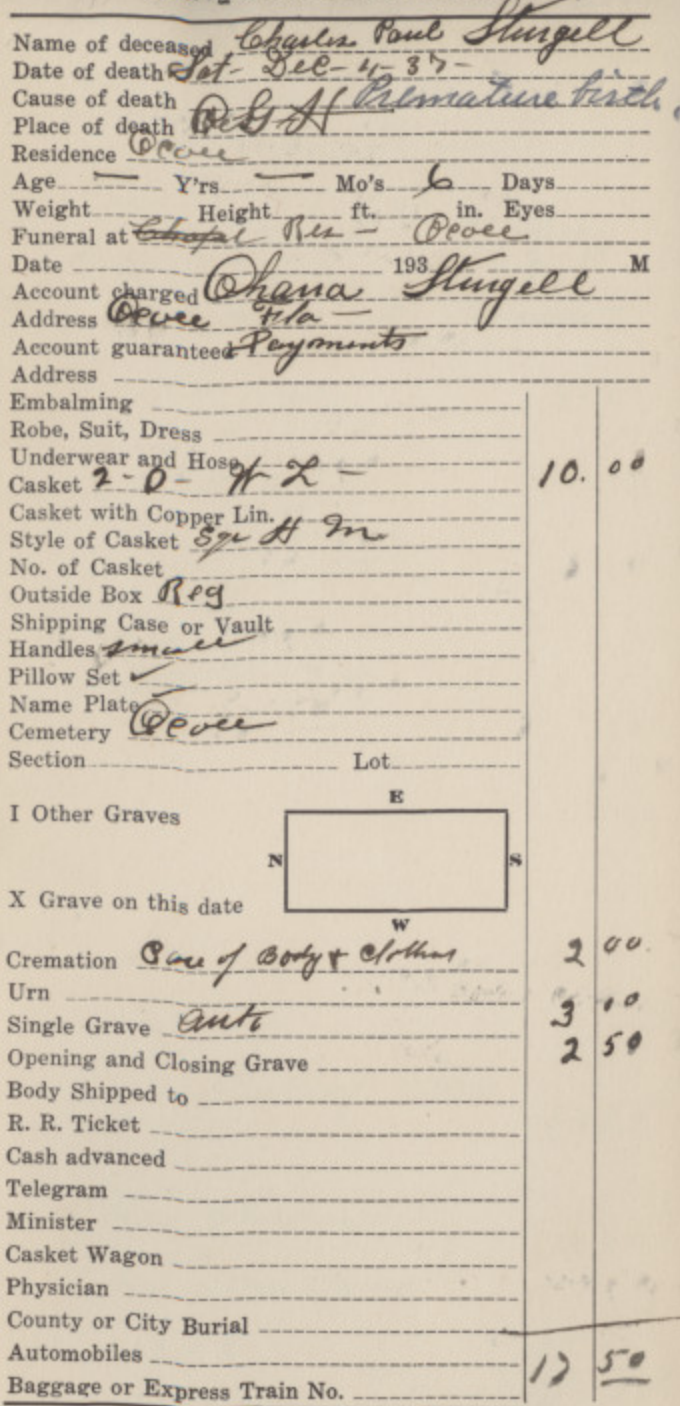 Name of deceased Charles Paul Sturgell
Date of death Sat- Dec-4-37-
Cause of death Premature birth
Place of death O G H
Residence Ocoee
Age — Y'rs — Mo's 6 Days
Weight Height ft. in. Eyes
Funeral at Chapel Res - Ocoee
Date 193 M
Account charged Ohana Sturgell
Address Ocoee Fla -
Account guaranteed Payments
Address
Embalming
Robe, Suit, Dress
Underwear and Hose
Casket 2-0- W L - 10. 00
Casket with Copper Lin.
Style of Casket Sqr H M
No. of Casket
Outside Box Reg
Shipping Case or Vault
Handles small
Pillow Set ✓
Name Plate ✓
Cemetery Ocoee
Section Lot
E
I Other Graves
N S
X Grave on this date
W
Cremation Care of Body & Clothes 2 00
Urn
Single Grave auto 3 00
Opening and Closing Grave 2 50
Body Shipped to
R. R. Ticket
Cash advanced
Telegram
Minister
Casket Wagon
Physician
County or City Burial
Automobiles 17 50
Baggage or Express Train No.